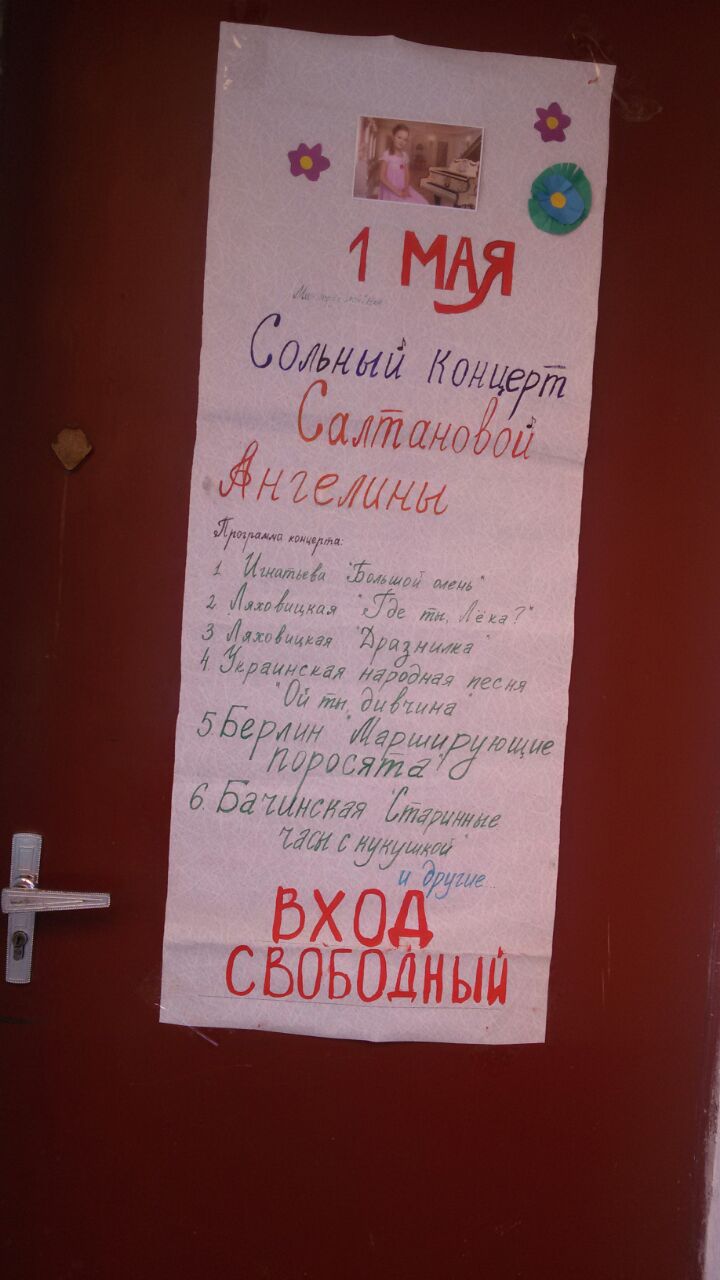 1 МАЯ
Сольный концерт
Салтановой
Ангелины
Программа концерта:
1 Игнатьева "Большой олень"
2 Ляховицкая "Где ты, Лёка?"
3 Ляховицкая "Дразнилка"
4 Украинская народная песня
"Ой ты дивчина"
5 Берлин "Марширующие
поросята"
6. Бачинская "Старинные
часы с кукушкой"
и другие...
ВХОД
СВОБОДНЫЙ